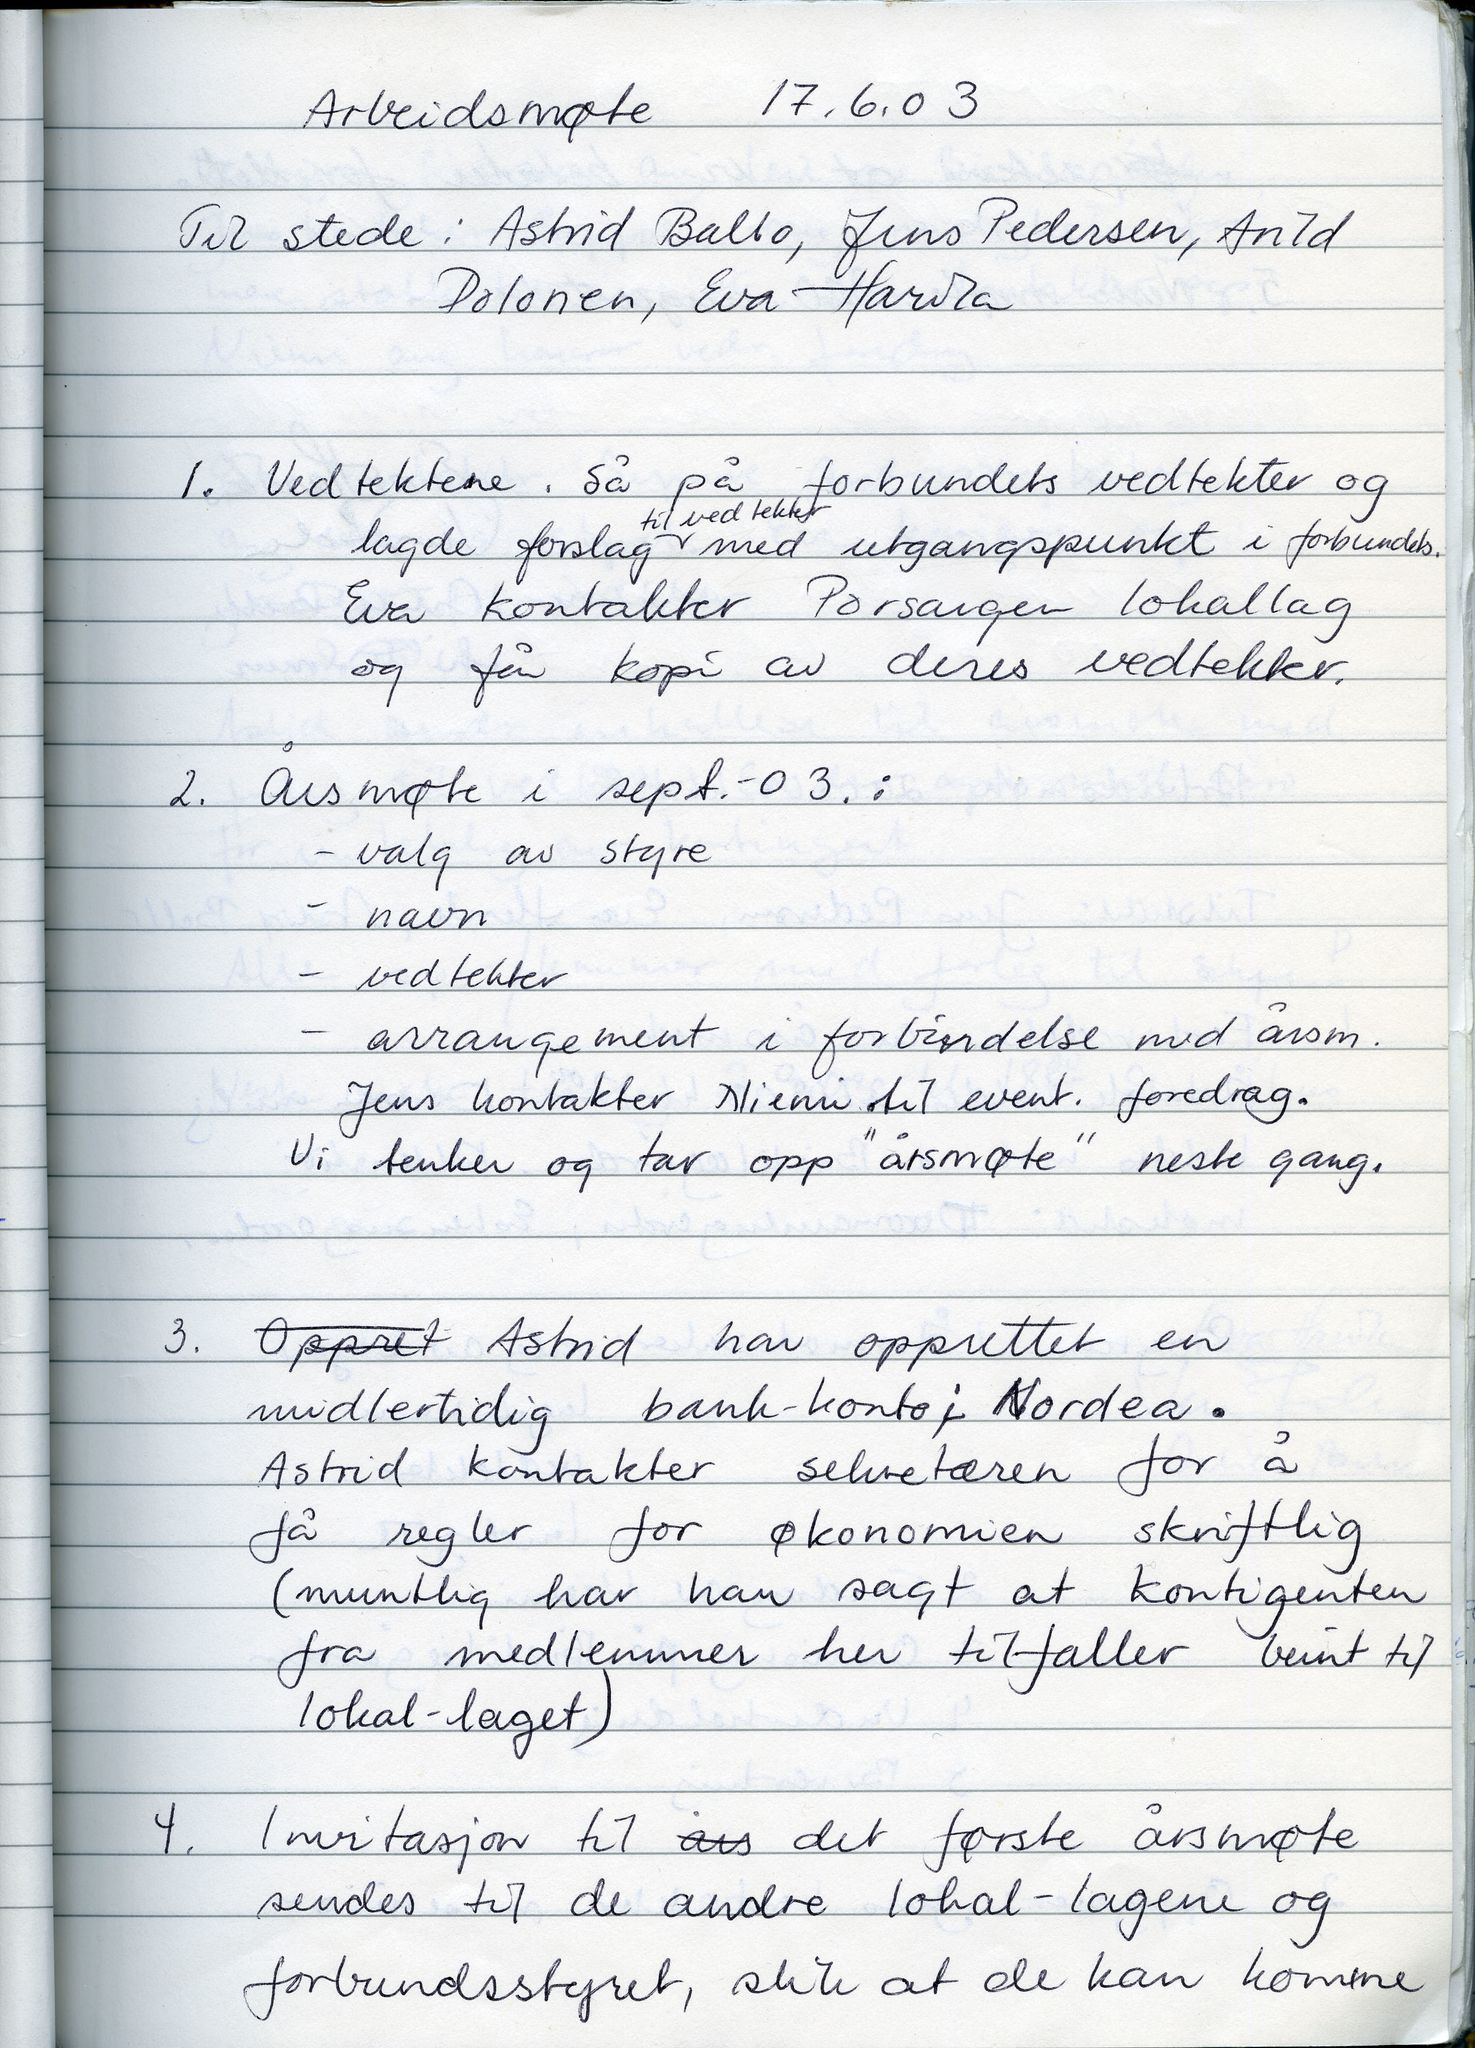 Arbeidsmøte 17.6.03
Til stede: Astrid Ballo, Jens Pedersen, Arild
Polonen, Eva Harila
1. Vedtektene. Så på forbundets vedtekter og
til vedtekter
lagde forslag med utgangspunkt i forbundets.
Eva kontakter Porsanger lokallag
og får kopi av deres vedtekter.
2. Årsmøte i sept.-03.:
- valg av styre
- navn
- vedtekter
- arrangement i forbindelse med årsm.
Jens kontakter Niemi til event. foredrag.
Vi tenker og tar opp "årsmøte" neste gang.
3. Oppret Astrid har opprettet en
midlertidig bank-konto i Nordea.
Astrid kontakter sekretæren for å
få regler for økonomien skriftlig
(muntlig har han sagt at kontigenten
fra medlemmer her tilfaller beint til
lokal-laget)
4. Invitasjon til års det første årsmøte
sendes til de andre lokal-lagene og
forbundsstyret, slik at de kan komme